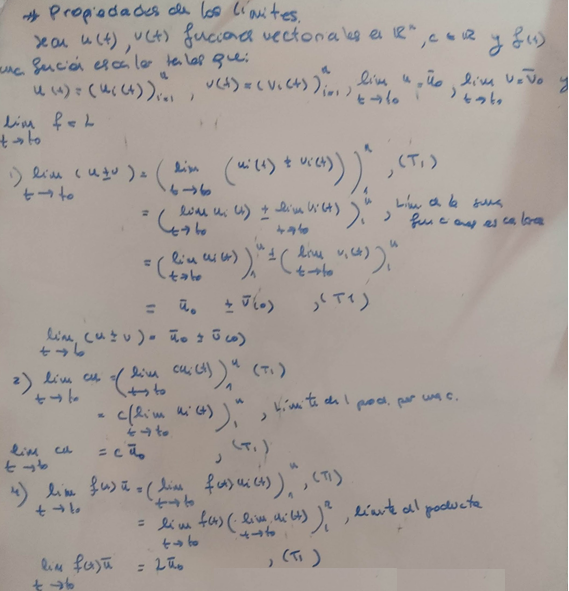 → Propiedades de los Límites.
Sean u(t), v(t) funciones vectoriales en ℝⁿ, c ∈ ℝ y f(t)
una función escalar tales que:
u(t) = (uᵢ(t))ⁿᵢ₌₁, v(t) = (vᵢ(t))ⁿᵢ₌₁, lim t→t₀ u = ū₀, lim t→t₀ v = v̄₀ y
lim t→t₀ f = L
1) lim t→t₀ (u ± v) = (lim t→t₀ (uᵢ(t) ± vᵢ(t)))ⁿ₁, (T₁)
= (lim t→t₀ uᵢ(t) ± lim t→t₀ vᵢ(t))ⁿ₁, Lím de la suma funciones escalares
= (lim t→t₀ uᵢ(t))ⁿ₁ ± (lim t→t₀ vᵢ(t))ⁿ₁
= ū₀ ± v̄(0), (T1)
lim t→t₀ (u ± v) = ū₀ ± v̄(0)
2) lim t→t₀ cu = (lim t→t₀ cuᵢ(t))ⁿ₁ (T₁)
= c(lim t→t₀ uᵢ(t))ⁿ₁, Límite del prod. por una c.
lim t→t₀ cu = c ū₀, (T₁)
4) lim t→t₀ f(t)ū = (lim t→t₀ f(t)uᵢ(t))ⁿ₁, (T1)
= lim t→t₀ f(t) (lim t→t₀ uᵢ(t))ⁿ₁, límite del producto
lim t→t₀ f(t)ū = Lū₀, (T1)